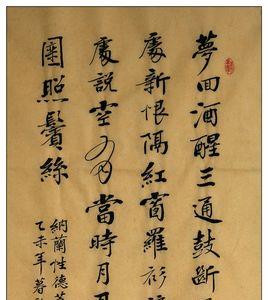 夢回酒醒三通鼓斷
處新恨隔紅窗羅衫
處說空有當時月
圞照鬢絲
納蘭性德
乙未年暮